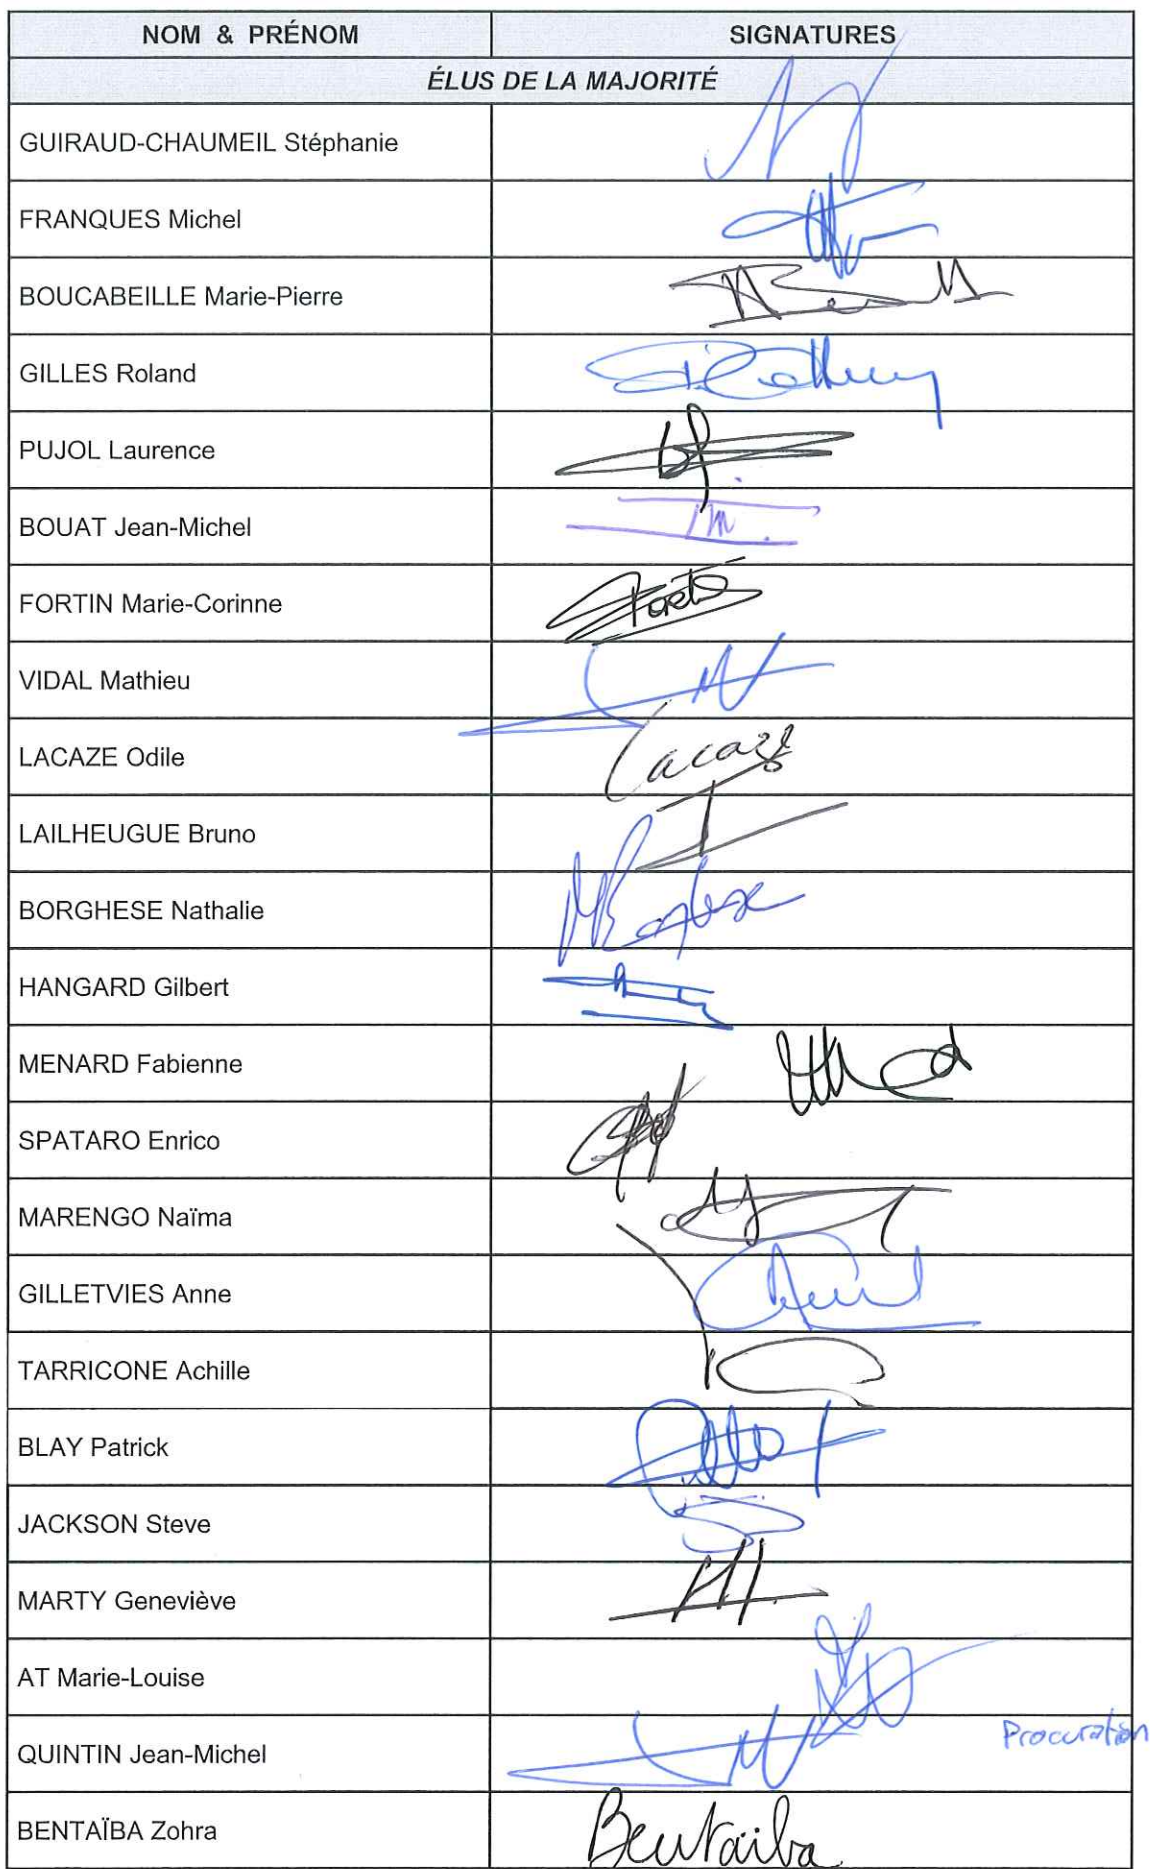 NOM & PRÉNOM SIGNATURES
ÉLUS DE LA MAJORITÉ
GUIRAUD-CHAUMEIL Stéphanie
FRANQUES Michel
BOUCABEILLE Marie-Pierre
GILLES Roland
PUJOL Laurence
BOUAT Jean-Michel
FORTIN Marie-Corinne
VIDAL Mathieu
LACAZE Odile Lacaze
LAILHEUGUE Bruno
BORGHESE Nathalie
HANGARD Gilbert
MENARD Fabienne
SPATARO Enrico
MARENGO Naïma
GILLETVIES Anne
TARRICONE Achille
BLAY Patrick
JACKSON Steve
MARTY Geneviève
AT Marie-Louise
QUINTIN Jean-Michel Procuration
BENTAÏBA Zohra Bentaïba